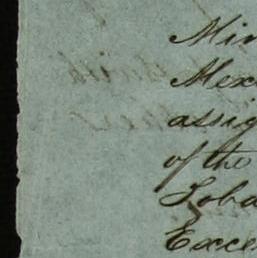 Min
Mexi
assig
of the
Toba
Exce